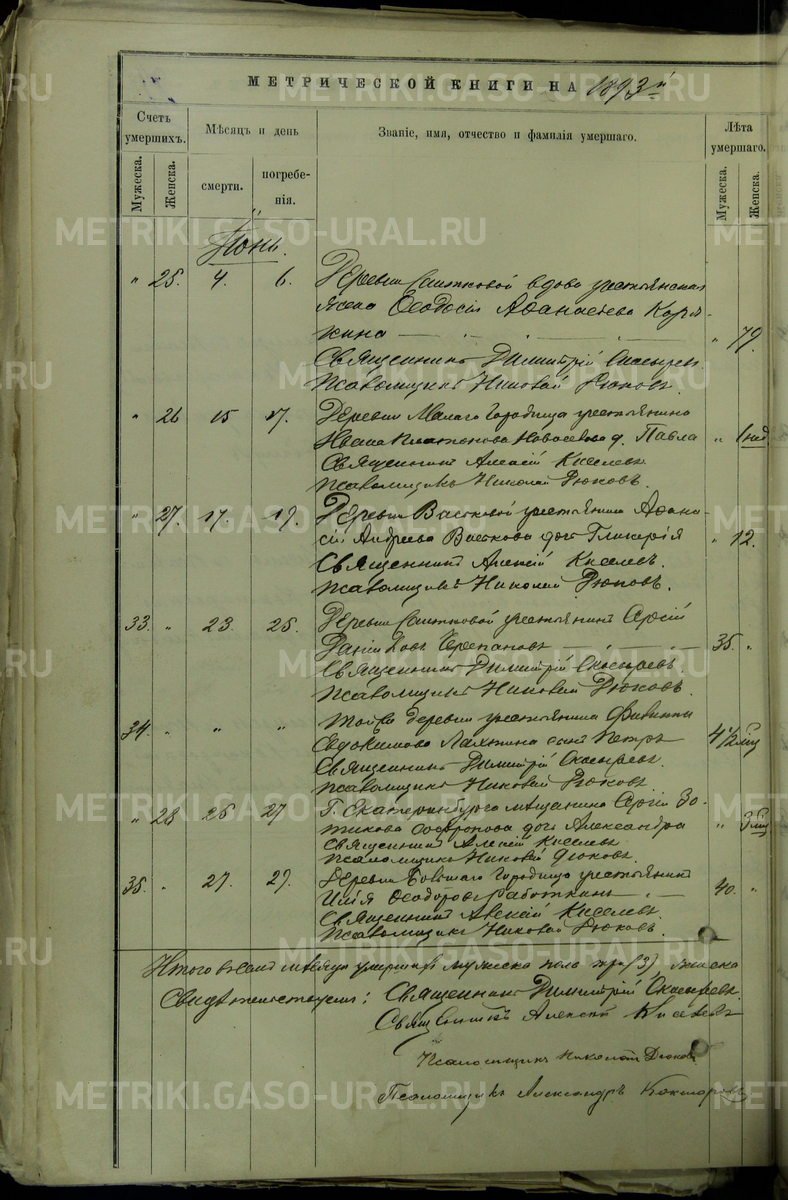 МЕТРИЧЕСКОЙ КНИГИ НА 1893й
Счетъ умершихъ.
Мужеска.
Женска.
Мѣсяцъ и день
смерти.
погребе-
нія.
Званіе, имя, отчество и фамилія умершаго.
Лѣта умершаго.
Мужеска.
Женска.
Іюнь.
" 25. 4. 6. Деревни вдова крестьянская
жена Ѳеодосія Аѳанасьева Коря-
кина " 79.
Священникъ Димитрій
Псаломщикъ Николай Дюковъ.
" 26 15 17. Деревни Малаго Городища крестьянина
Ивана Платонова д. Павла " 1 нед
Священникъ Алексій Киселевъ
Псаломщикъ Николай Дюковъ.
" 27. 17. 19. Деревни крестьянина Аѳана-
сія Андреева дочь Гликерія " 12.
Священникъ Алексій Киселевъ.
Псаломщикъ Николай Дюковъ.
33. " 23. 25. Деревни крестьянинъ Сергій
Даніиловъ Черепановъ 35. "
Священникъ Димитрій
Псаломщикъ Николай Дюковъ.
34. " " " Той же деревни крестьянина
Евдокимова Лахтина сынъ Петръ 4½ мц
Священникъ Димитрій
Псаломщикъ Николай Дюковъ.
" 28 26 27 Г. Екатеринбурга мѣщанина Сергія Зо-
тикова дочь Александра " 3 мц
Священникъ Алексій Киселевъ
Псаломщикъ Николай Дюковъ.
35. " 27. 29. Деревни Большаго Городища крестьянинъ
Илія Ѳеодоровъ Работкинъ 40. "
Священникъ Алексій Киселевъ.
Псаломщикъ Николай Дюковъ.
Итого въ семъ мѣсяцѣ умершихъ мужеска пола три (3), женска
Свидѣтельствуемъ: Священникъ Димитрій
Священникъ Алексій Киселевъ
Псаломщикъ Николай Дюковъ
Псаломщикъ Александръ
METRIKI.GASO-URAL.RU